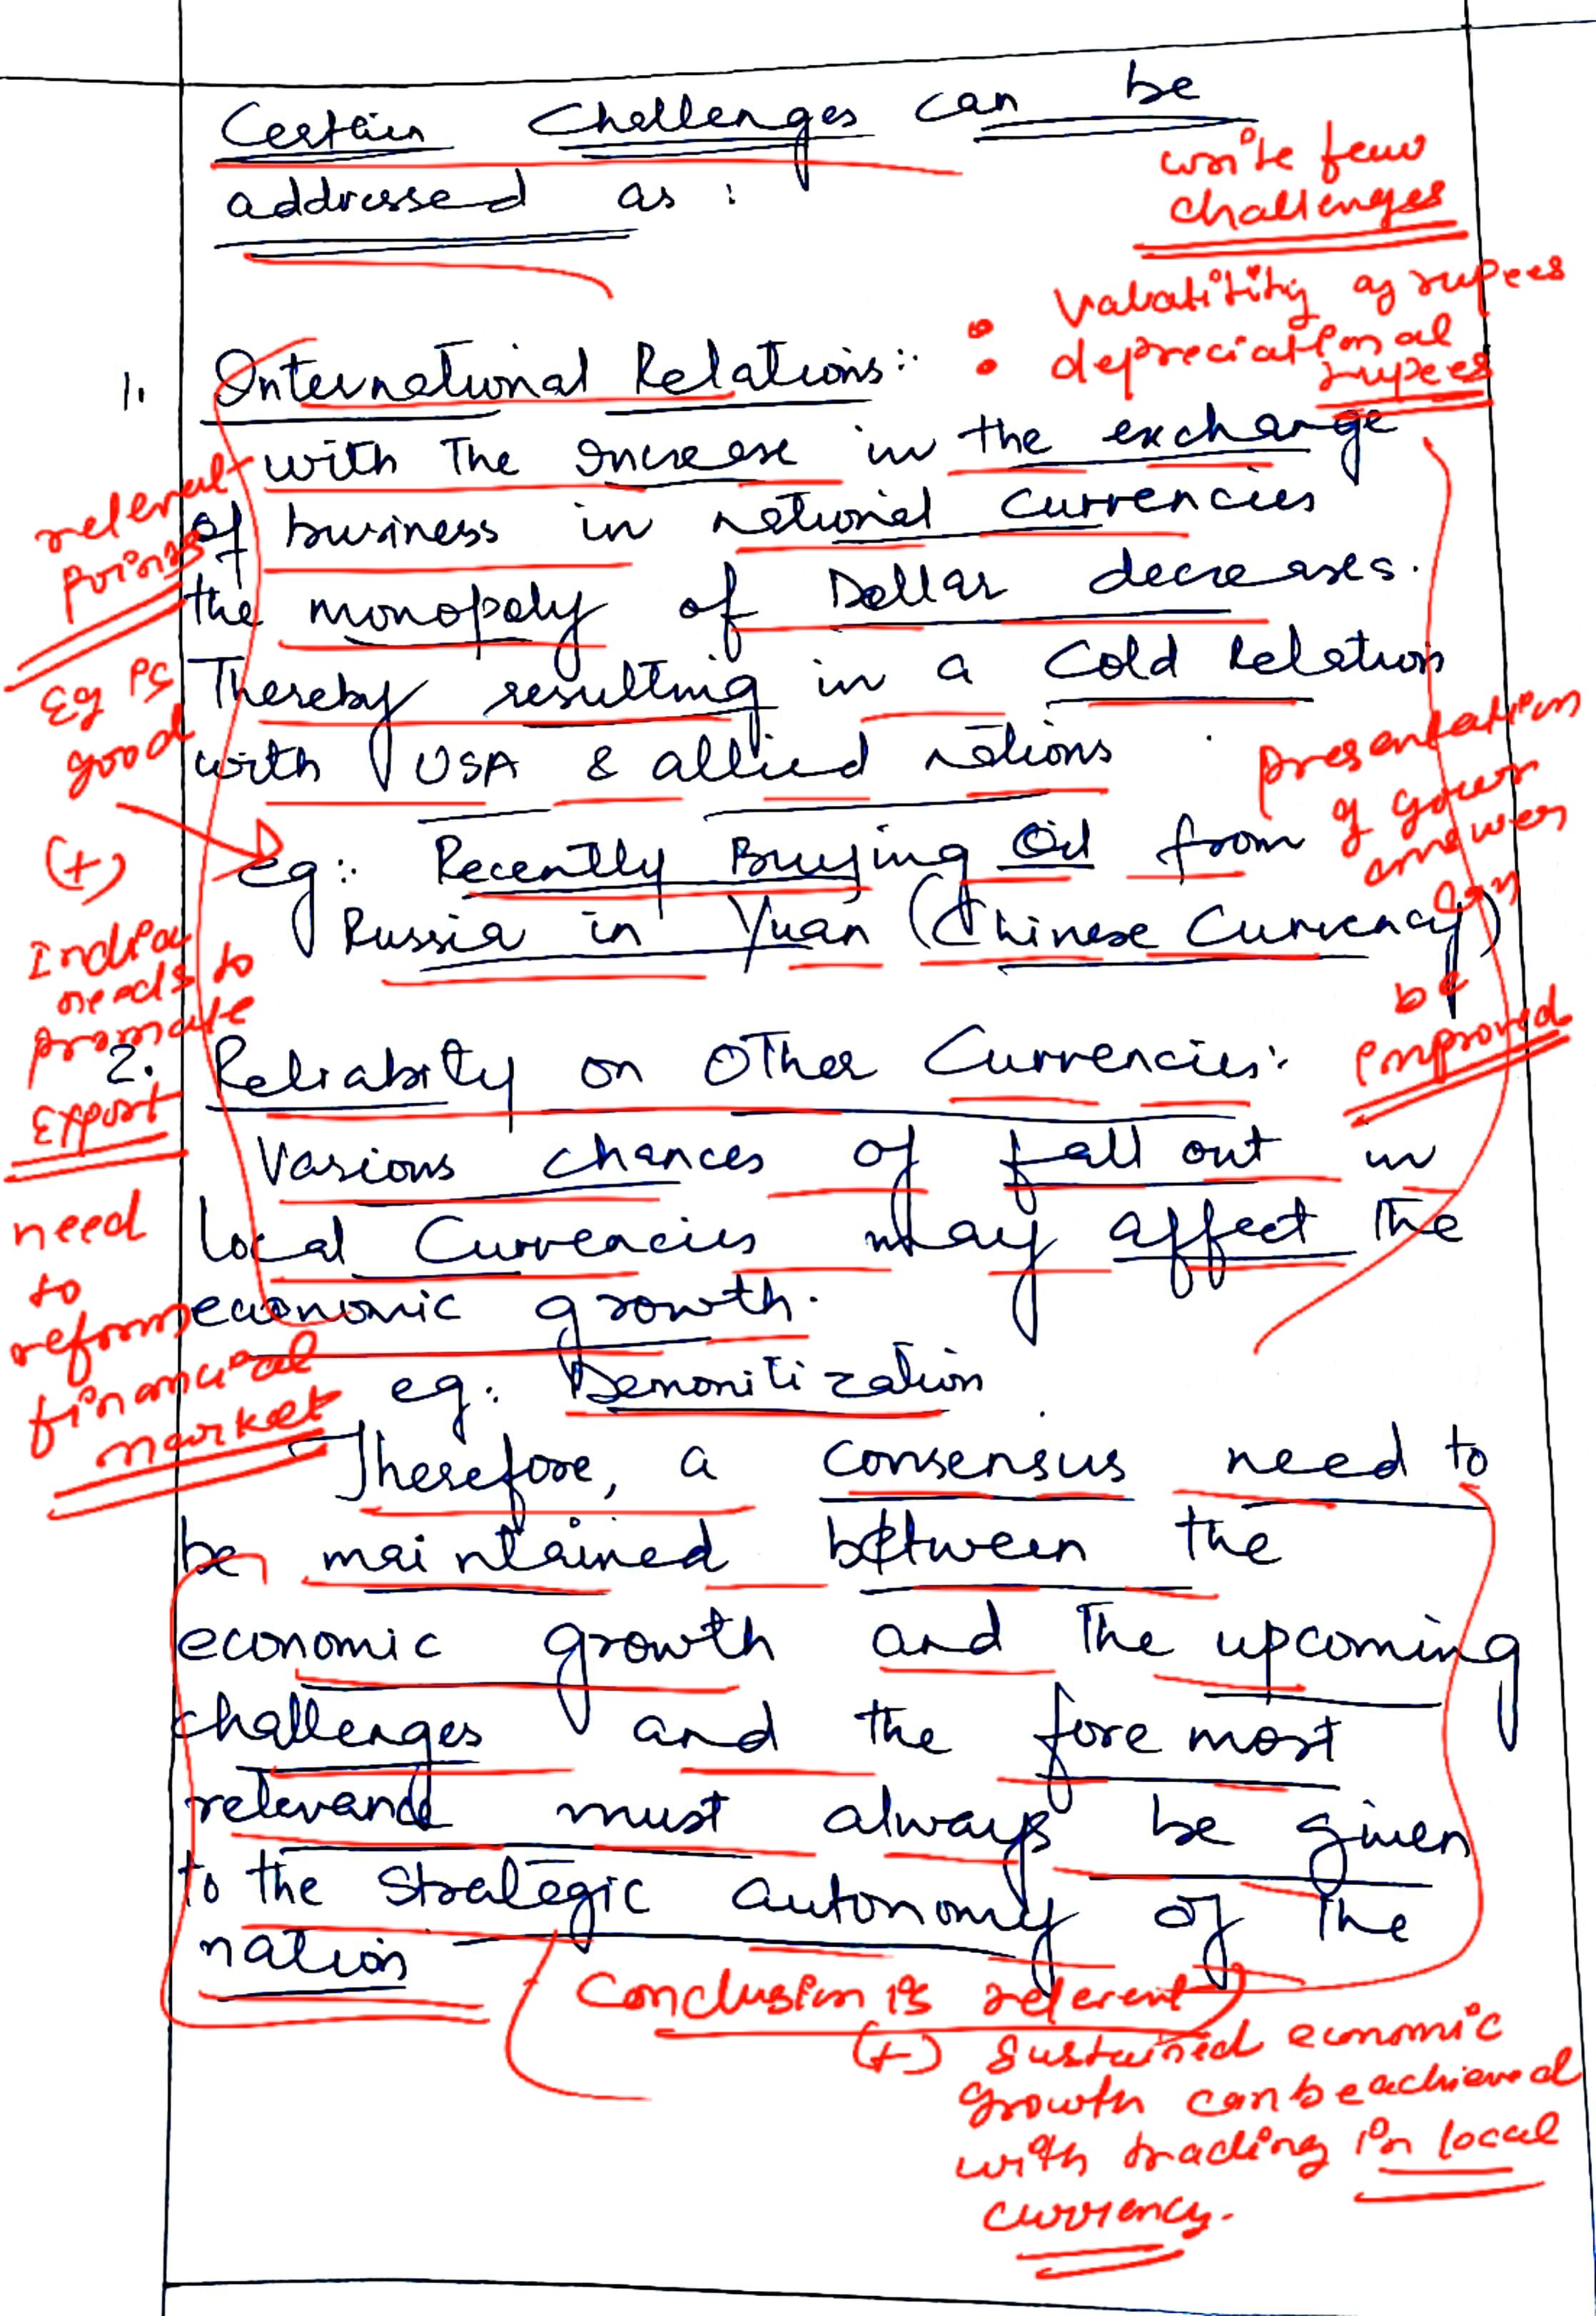 Certain Challenges can be
addressed as :
write few
challenges
• Valatitity of rupees
• depreciation of
rupees
1. International Relations:
with The increase in the exchange
of business in national currencies
the monopoly of Dollar decreases.
Thereby resulting in a Cold Relation
with USA & allied nations
eg: Recently Buying Oil from
Russia in Yuan (Chinese Currency)
relevant
points
Eg is
good
(+)
India
needs to
promote
Export
need
to
reform
financial
market
presentation
of your
answer
can
be
improved
2. Reliabity on OTher Currencies:
Various chances of fall out in
local Currencies may affect The
economic growth.
eg: Demonitization
Therefore, a consensus need to
be maintained between the
economic growth and The upcoming
challenges and the fore most
relevance must always be given
to the strategic autonomy of The
nation
Conclusion is relevent
(+) Sustained economic
growth can be achieved
with trading in local
currency.